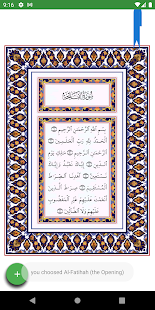 9:16
سُورَةُ الْفَاتِحَةِ
بِسْمِ اللَّهِ الرَّحْمَٰنِ الرَّحِيمِ
الْحَمْدُ لِلَّهِ رَبِّ الْعَٰلَمِينَ
الرَّحْمَٰنِ الرَّحِيمِ مَٰلِكِ يَوْمِ
الدِّينِ إِيَّاكَ نَعْبُدُ وَإِيَّاكَ
نَسْتَعِينُ اهْدِنَا الصِّرَٰطَ
الْمُسْتَقِيمَ صِرَٰطَ الَّذِينَ
أَنْعَمْتَ عَلَيْهِمْ غَيْرِ الْمَغْضُوبِ
عَلَيْهِمْ وَلَا الضَّالِّينَ
you choosed Al-Fatihah (the Opening)